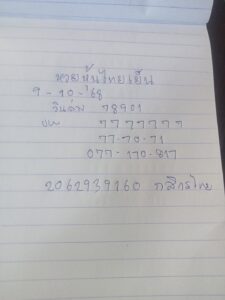 หวยหุ้นไทยเย็น
9-10-68
วินล่าง 78901
บน 7777777
77-70-71
077-170-817
2062939160 กสิกรไทย